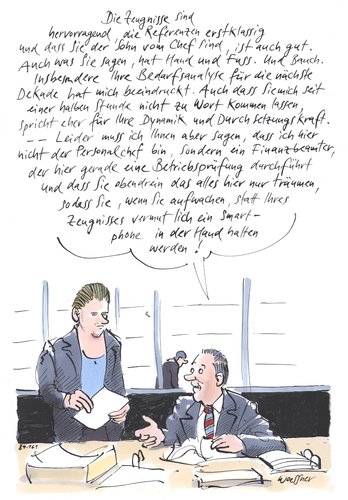 Die Zeugnisse sind
hervorragend, die Referenzen erstklassig
und dass Sie der Sohn vom Chef sind, ist auch gut.
Auch was Sie sagen, hat Hand und Fuss. Und Bauch.
Insbesondere Ihre Bedarfsanalyse für die nächste
Dekade hat mich beeindruckt. Auch dass Sie mich seit
einer halben Stunde nicht zu Wort kommen lassen,
spricht eher für Ihre Dynamik und Durchsetzungskraft.
-- Leider muss ich Ihnen aber sagen, dass ich hier
nicht der Personalchef bin, sondern ein Finanzbeamter,
der hier gerade eine Betriebsprüfung durchführt
und dass Sie obendrein das alles hier nur träumen,
sodass Sie, wenn Sie aufwachen, statt Ihres
Zeugnisses vermutlich ein Smart-
phone in der Hand halten
werden!
waessner